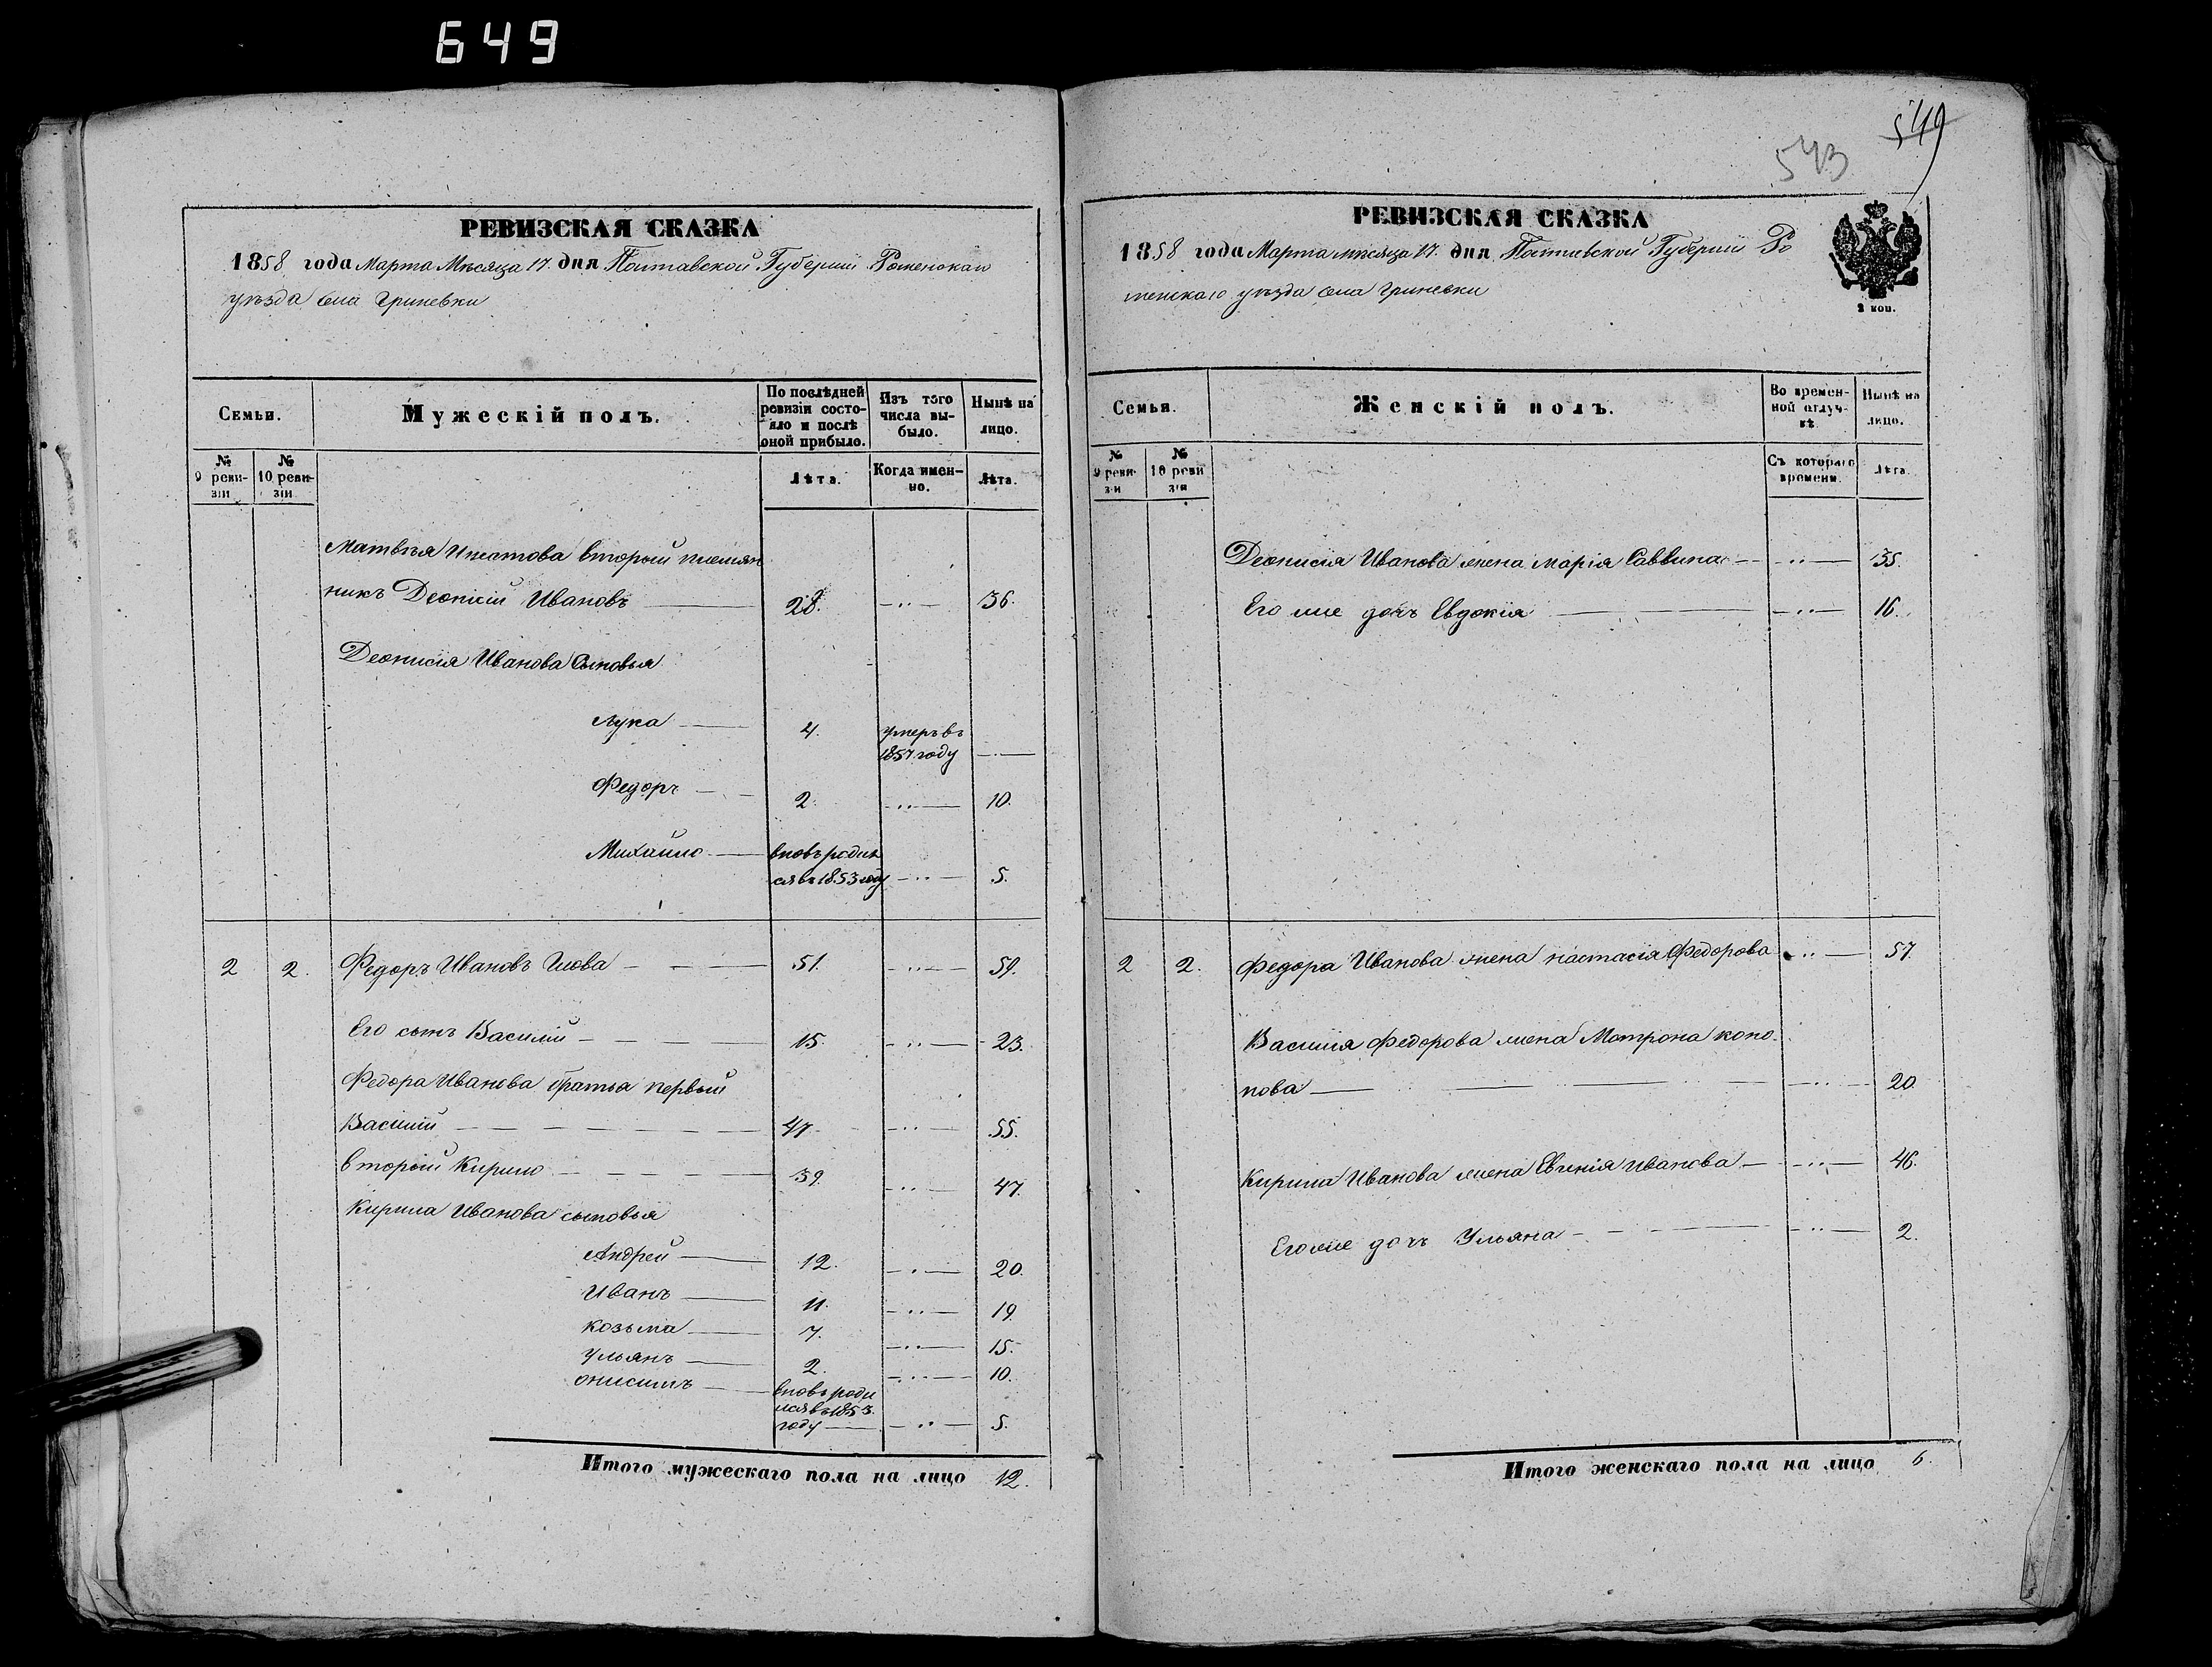 649
549
543
РЕВИЗСКАЯ СКАЗКА
1858 года Марта Мѣсяца 17. дня Полтавской Губерніи Роменскаго
уѣзда села Гриневки
Семьи.
Мужескій полъ.
По послѣдней
ревизіи состо-
яло и послѣ
оной прибыло.
Изъ того
числа вы-
было.
Нынѣ на
лицо.
№
9 реви-
зіи
№
10 реви-
зіи
Лѣта.
Когда имен-
но.
Лѣта.
Матвѣя второй племян
никъ Деонисій Ивановъ 28. 36.
Деонисія Иванова Сыновья
Лука 4. умеръ въ
1857. году
Федоръ 2. 10.
Михайло вновь родил
ся въ 1853 году 5.
2 2. Федоръ Ивановъ 51. 59.
Его сынъ Василій 15. 23.
Федора Иванова братья первый
Василій 47. 55.
второй Кирило 39. 47.
Кирила Иванова сыновья
Андрей 12. 20.
Иванъ 11. 19.
Козьма 7. 15.
Ульянъ 2. 10.
Онисимъ вновь роди
лся въ 1853.
году 5.
Итого мужескаго пола на лицо 12.
РЕВИЗСКАЯ СКАЗКА
1858 года Марта мѣсяца 17. дня Полтавской Губерніи Ро
менскаго уѣзда села Гриневки
2 коп.
Семьи.
Женскій полъ.
Во времен-
ной отлуч-
кѣ.
Нынѣ на
лицо.
№
9 реви-
зіи
№
10 реви
зіи
Съ котораго
времени.
Лѣта.
Деонисія Иванова жена Марія Саввина 35.
Его же дочь Евдокія 16.
2 2. Федора Иванова жена Настасія Федорова 57.
Василія Федорова жена Мотрона Коно-
нова 20.
Кирила Иванова жена Евгенія Иванова 46.
Его же дочь Ульяна 2.
Итого женскаго пола на лицо 6.